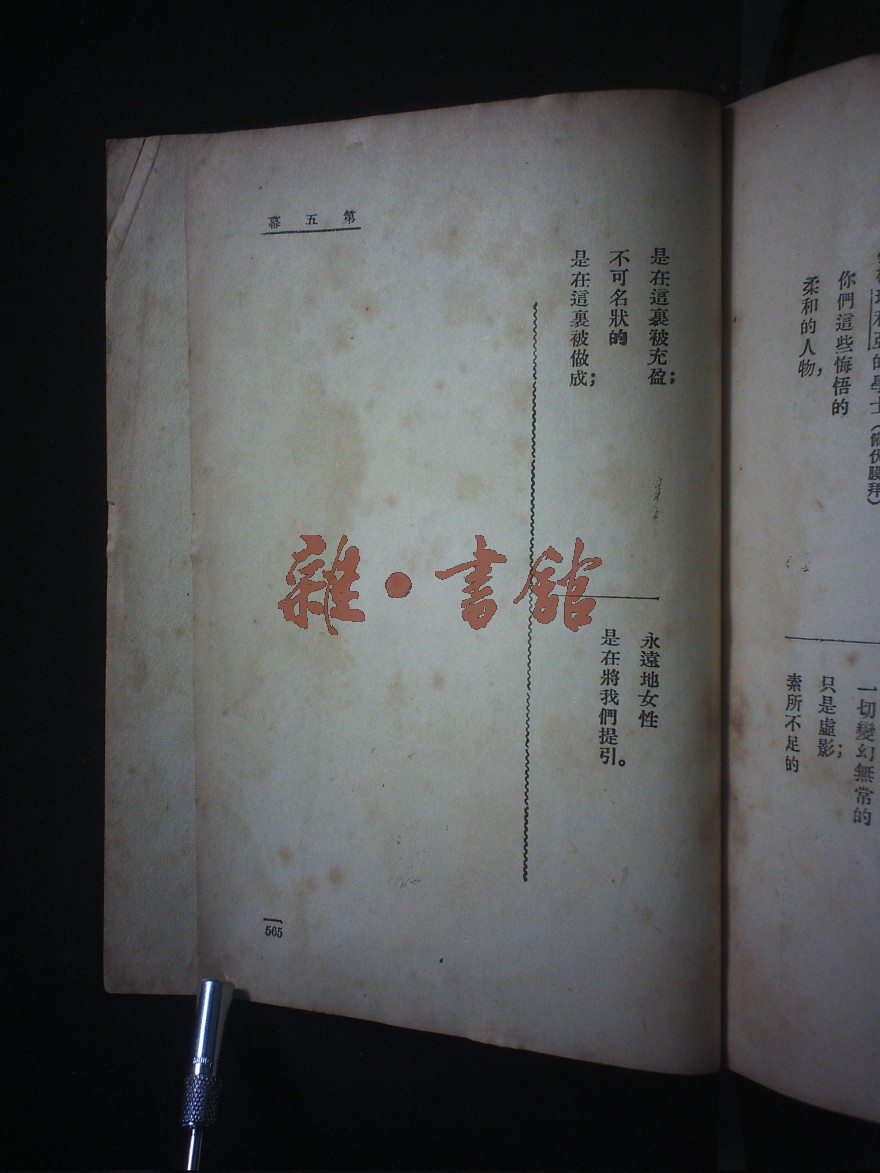 的學士(俯伏膜拜)
你們這些悔悟的
柔和的人物,
一切變幻無常的
只是虛影;
素所不足的
第五幕
是在這裏被充盈;
不可名狀的
是在這裏被做成;
永遠地女性
是在將我們提引。
565
雜·書館